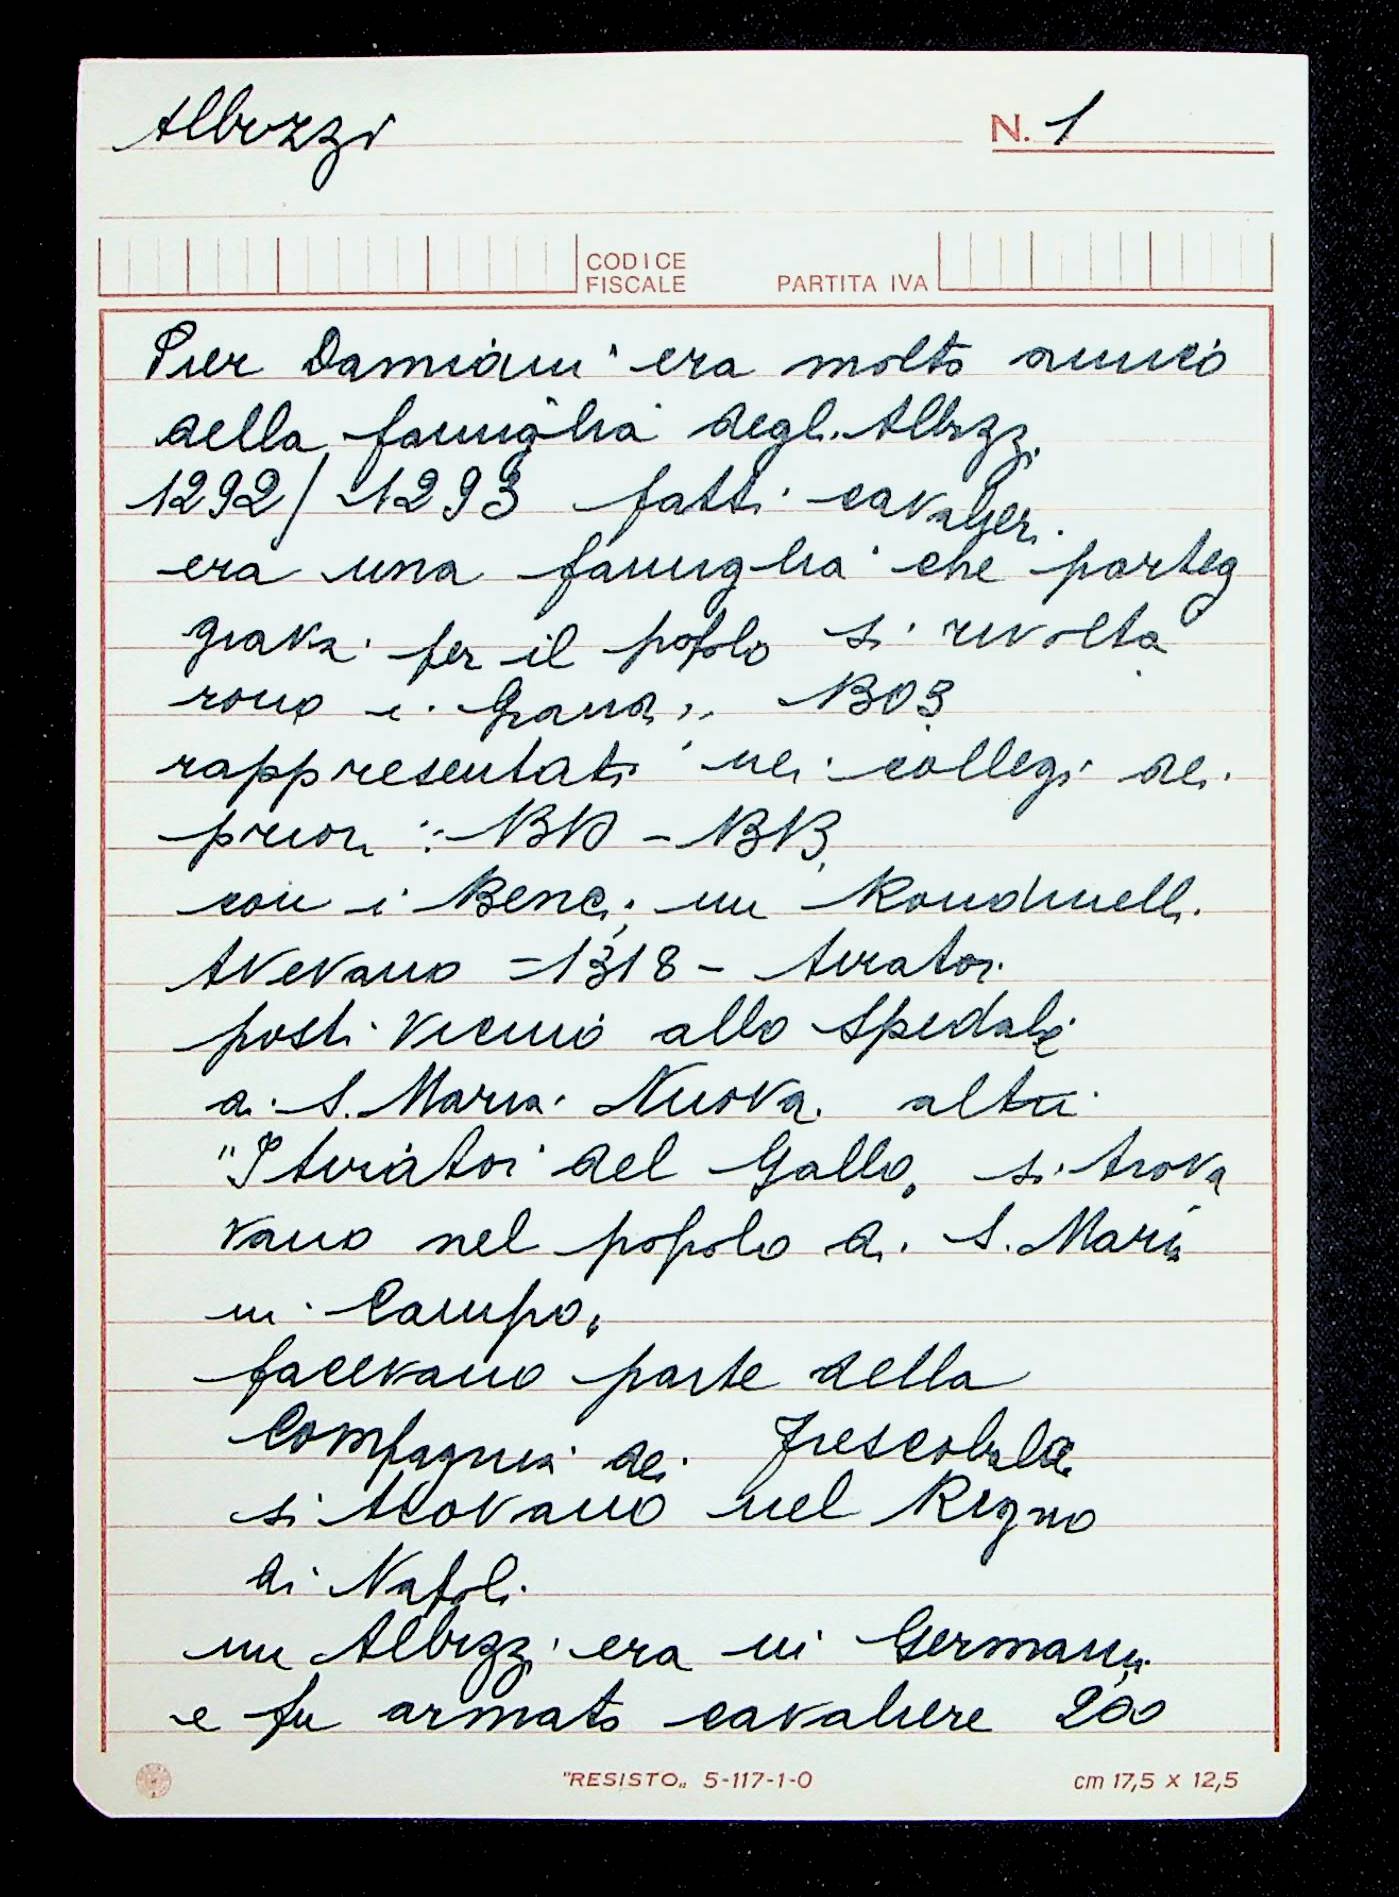 Albizzi
N. 1
CODICE
FISCALE
PARTITA IVA
Pier Damiani era molto amico
della famiglia degli Albizzi
1292/1293 fatti cavalieri.
era una famiglia che parteg
giava per il popolo si rivolta
rono i Grandi 1303
rappresentati nei collegi dei
priori: 1310 - 1313
con i Benci, un Rondinelli.
Avevano = 1318 - tiratoi
posti vicino allo Spedale
di S. Maria Nuova. altri
"I tiratoi del Gallo, si trova
vano nel popolo di S. Maria
in Campo,
facevano parte della
Compagnia dei Frescobaldi
si trovano nel Regno
di Napoli.
un Albizzi era in Germania
e fu armato cavaliere 200
"RESISTO„ 5-117-1-0
cm 17,5 x 12,5